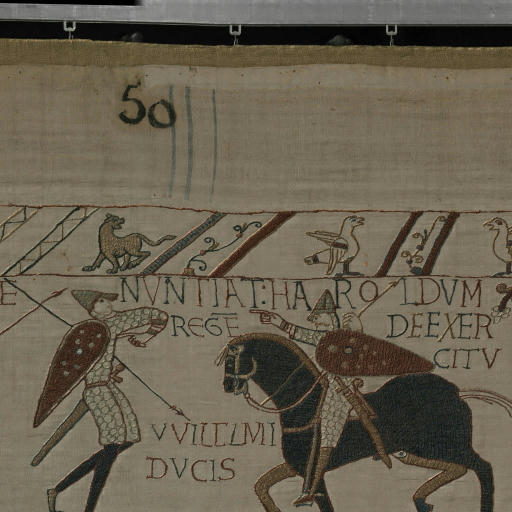 50
E NVNTIAT: HAROLDVM
REGE̅ DE EXER
CITV
VVILLELMI
DVCIS